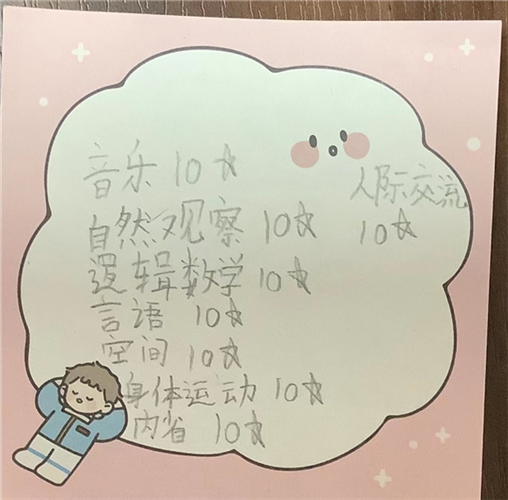 音乐 10☆
人际交流
10☆
自然观察 10☆
逻辑数学 10☆
言语 10☆
空间 10☆
身体运动 10☆
内省 10☆